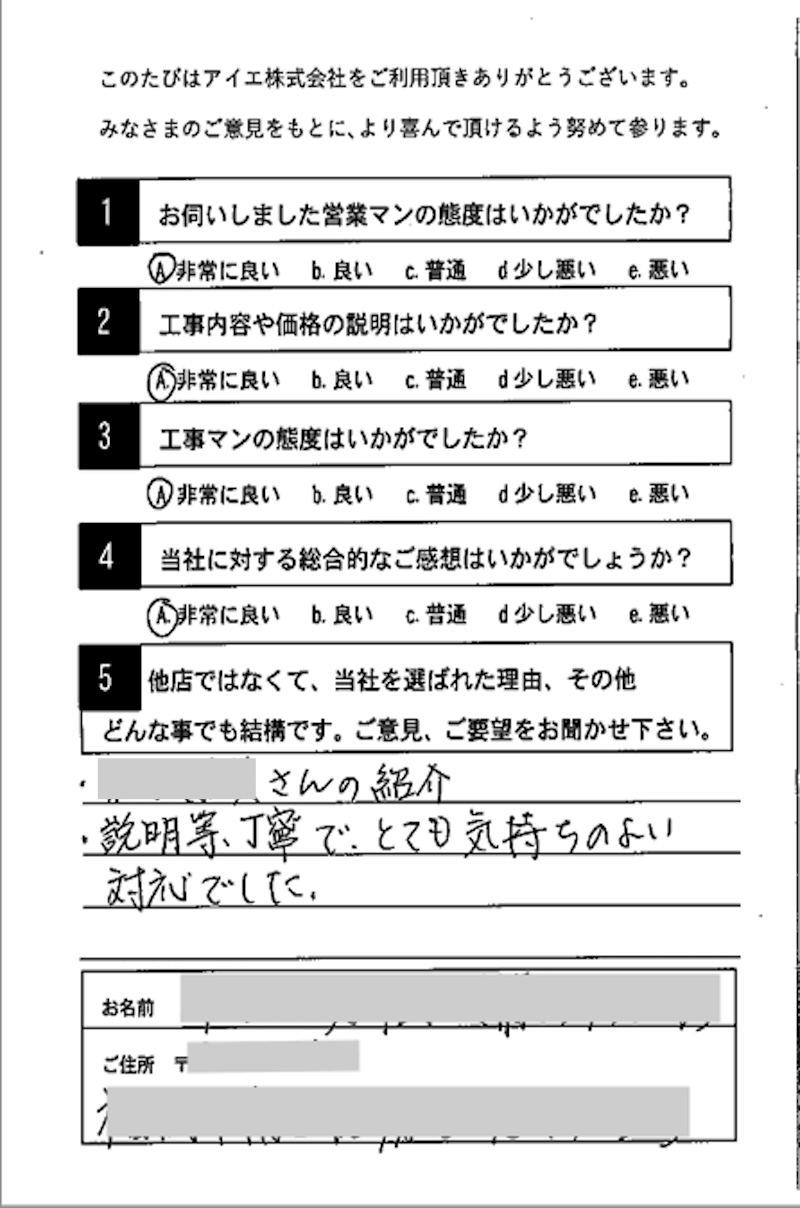 このたびはアイエ株式会社をご利用頂きありがとうございます。
みなさまのご意見をもとに、より喜んで頂けるよう努めて参ります。
1 お伺いしました営業マンの態度はいかがでしたか？
A 非常に良い b. 良い c. 普通 d 少し悪い e. 悪い
2 工事内容や価格の説明はいかがでしたか？
A. 非常に良い b. 良い c. 普通 d 少し悪い e. 悪い
3 工事マンの態度はいかがでしたか？
A 非常に良い b. 良い c. 普通 d 少し悪い e. 悪い
4 当社に対する総合的なご感想はいかがでしょうか？
A. 非常に良い b. 良い c. 普通 d 少し悪い e. 悪い
5 他店ではなくて、当社を選ばれた理由、その他
どんな事でも結構です。ご意見、ご要望をお聞かせ下さい。
・ さんの紹介
・説明等、丁寧で、とても気持ちのよい
対応でした。
お名前
ご住所 〒